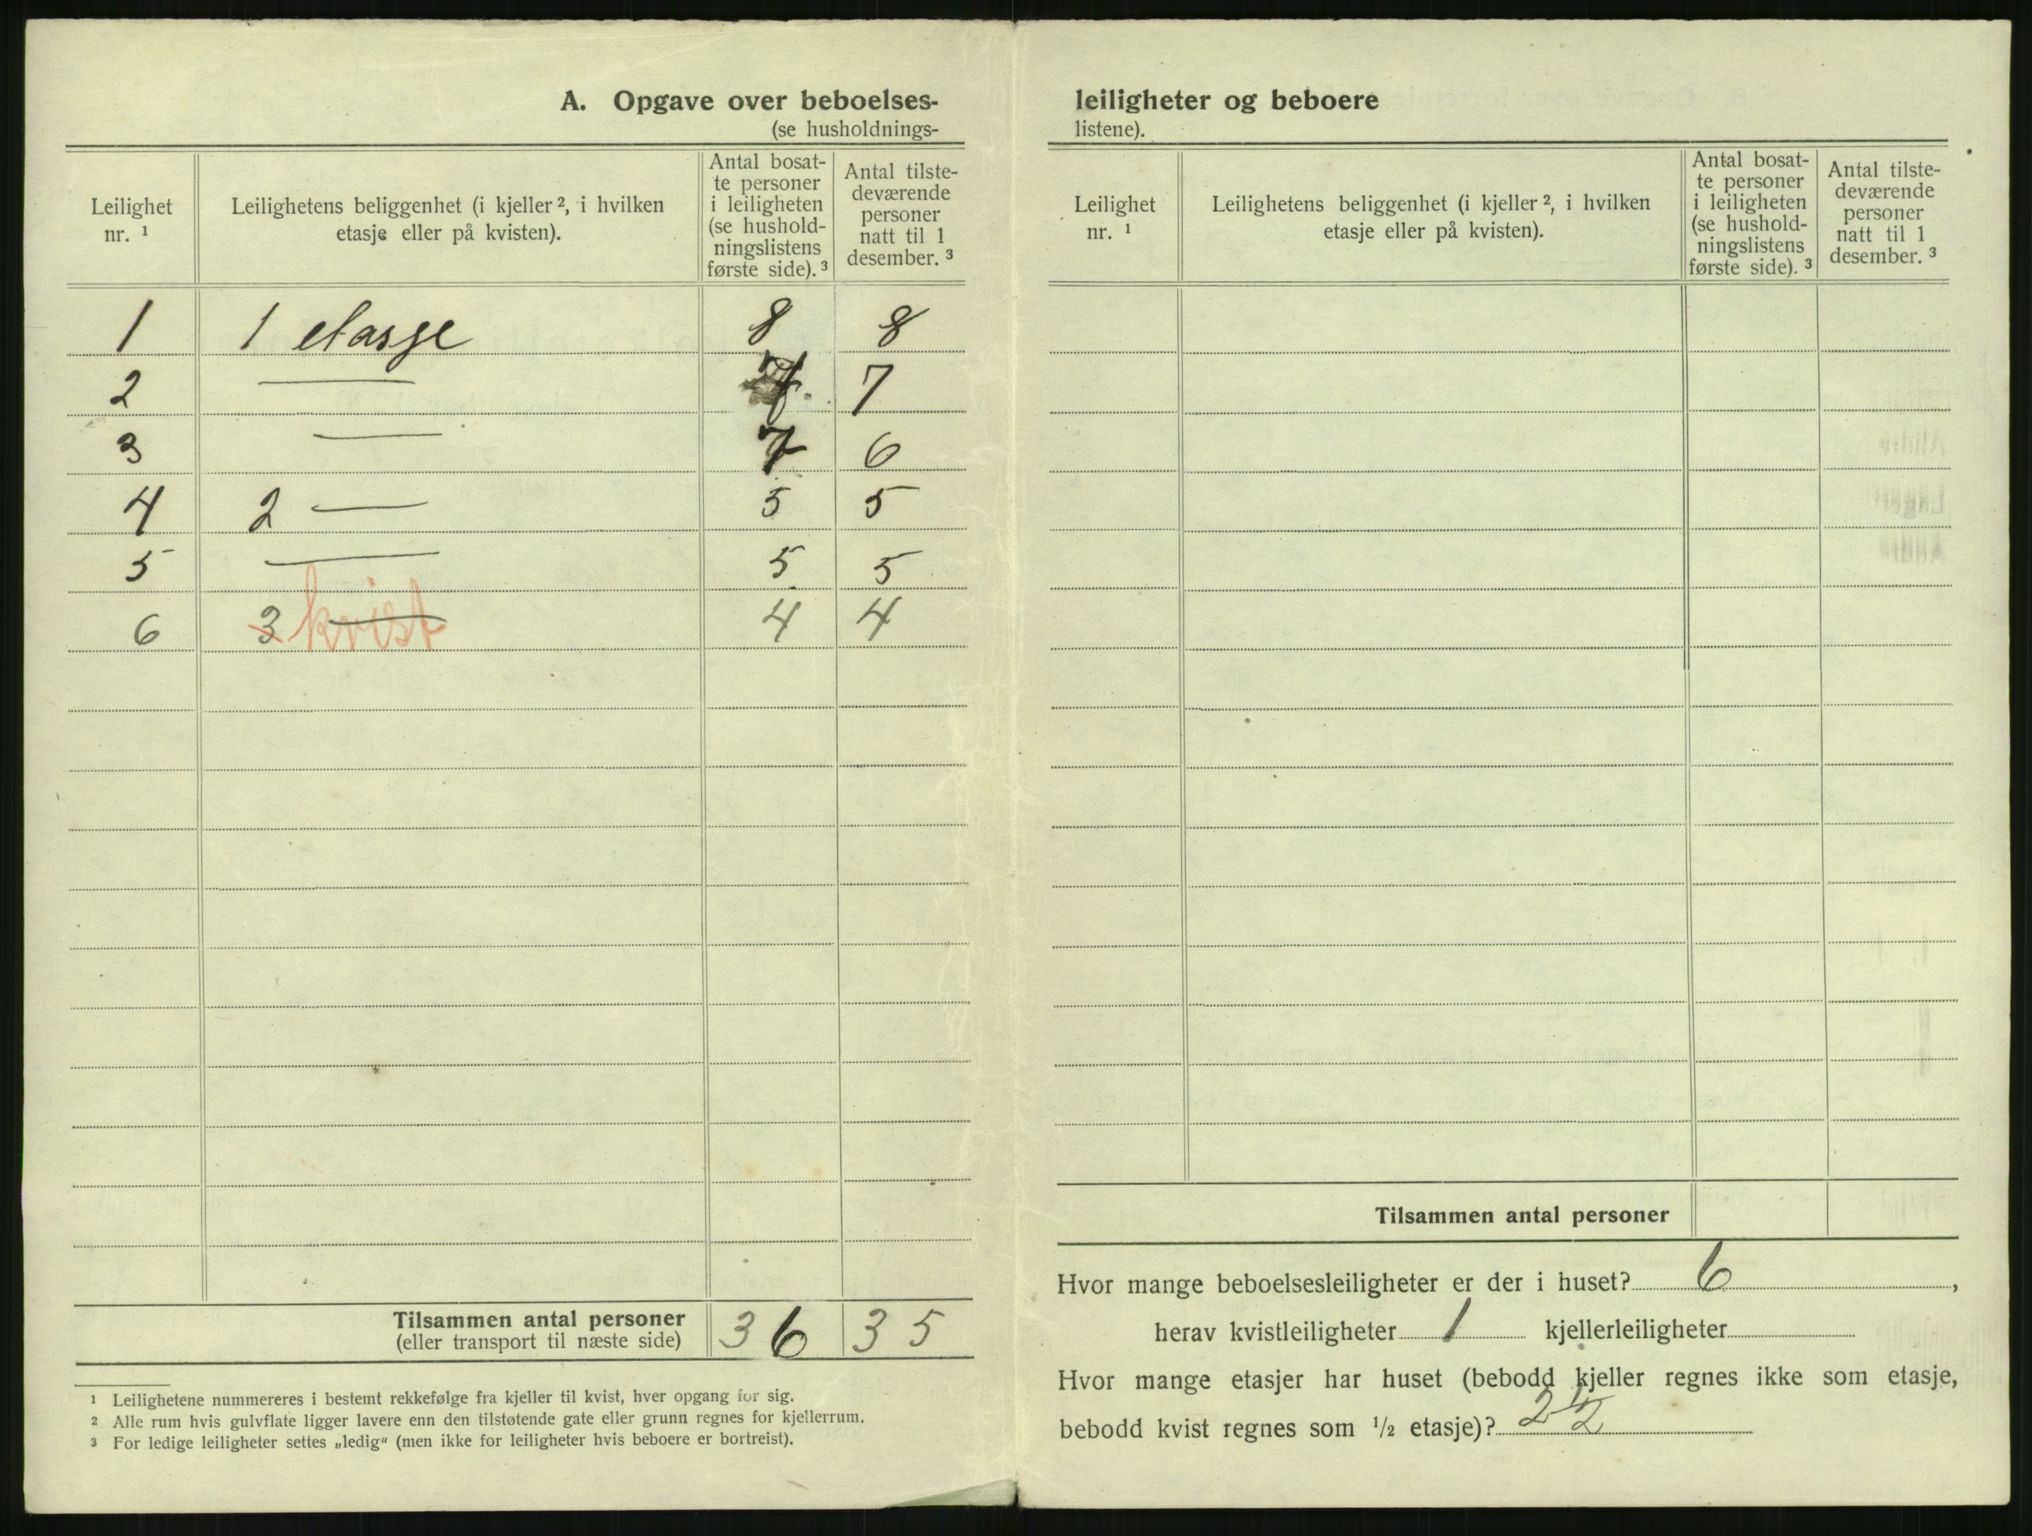 A. Opgave over beboelses-
(se husholdnings-
Leilighet nr. ¹
Leilighetens beliggenhet (i kjeller ², i hvilken etasje eller på kvisten).
Antal bosat-
te personer
i leiligheten
(se hushold-
ningslistens
første side). ³
Antal tilste-
deværende
personer
natt til 1
desember. ³
1 1 etasje 8 8
2 — 7 7
3 — 7 6
4 2 — 5 5
5 — 5 5
6 3 — kvist 4 4
Tilsammen antal personer 36 35
(eller transport til næste side)
¹ Leilighetene nummereres i bestemt rekkefølge fra kjeller til kvist, hver opgang for sig.
² Alle rum hvis gulvflate ligger lavere enn den tilstøtende gate eller grunn regnes for kjellerrum.
³ For ledige leiligheter settes „ledig“ (men ikke for leiligheter hvis beboere er bortreist).
leiligheter og beboere
listene).
Leilighet nr. ¹
Leilighetens beliggenhet (i kjeller ², i hvilken etasje eller på kvisten).
Antal bosat-
te personer
i leiligheten
(se hushold-
ningslistens
første side). ³
Antal tilste-
deværende
personer
natt til 1
desember. ³
Tilsammen antal personer
Hvor mange beboelsesleiligheter er der i huset? 6,
herav kvistleiligheter 1 kjellerleiligheter
Hvor mange etasjer har huset (bebodd kjeller regnes ikke som etasje,
bebodd kvist regnes som ½ etasje)? 2½